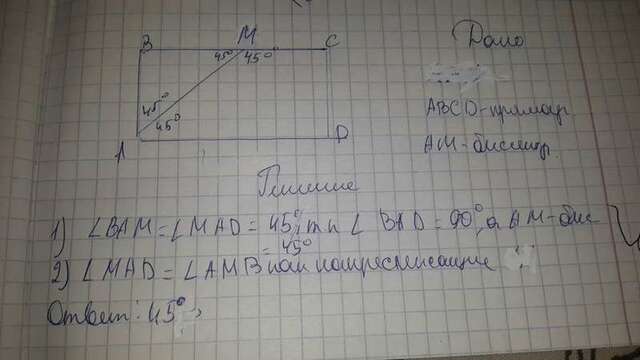 B M C Дано
45° 45°
45°
45°
A D
ABCD-прямоуг.
AM-биссектр.
Решение
1) ∠BAM=∠MAD=45°, т к ∠ BAD=90°, а AM-бис
2) ∠MAD=∠AMB=45° как накрестлежащие
Ответ: 45°